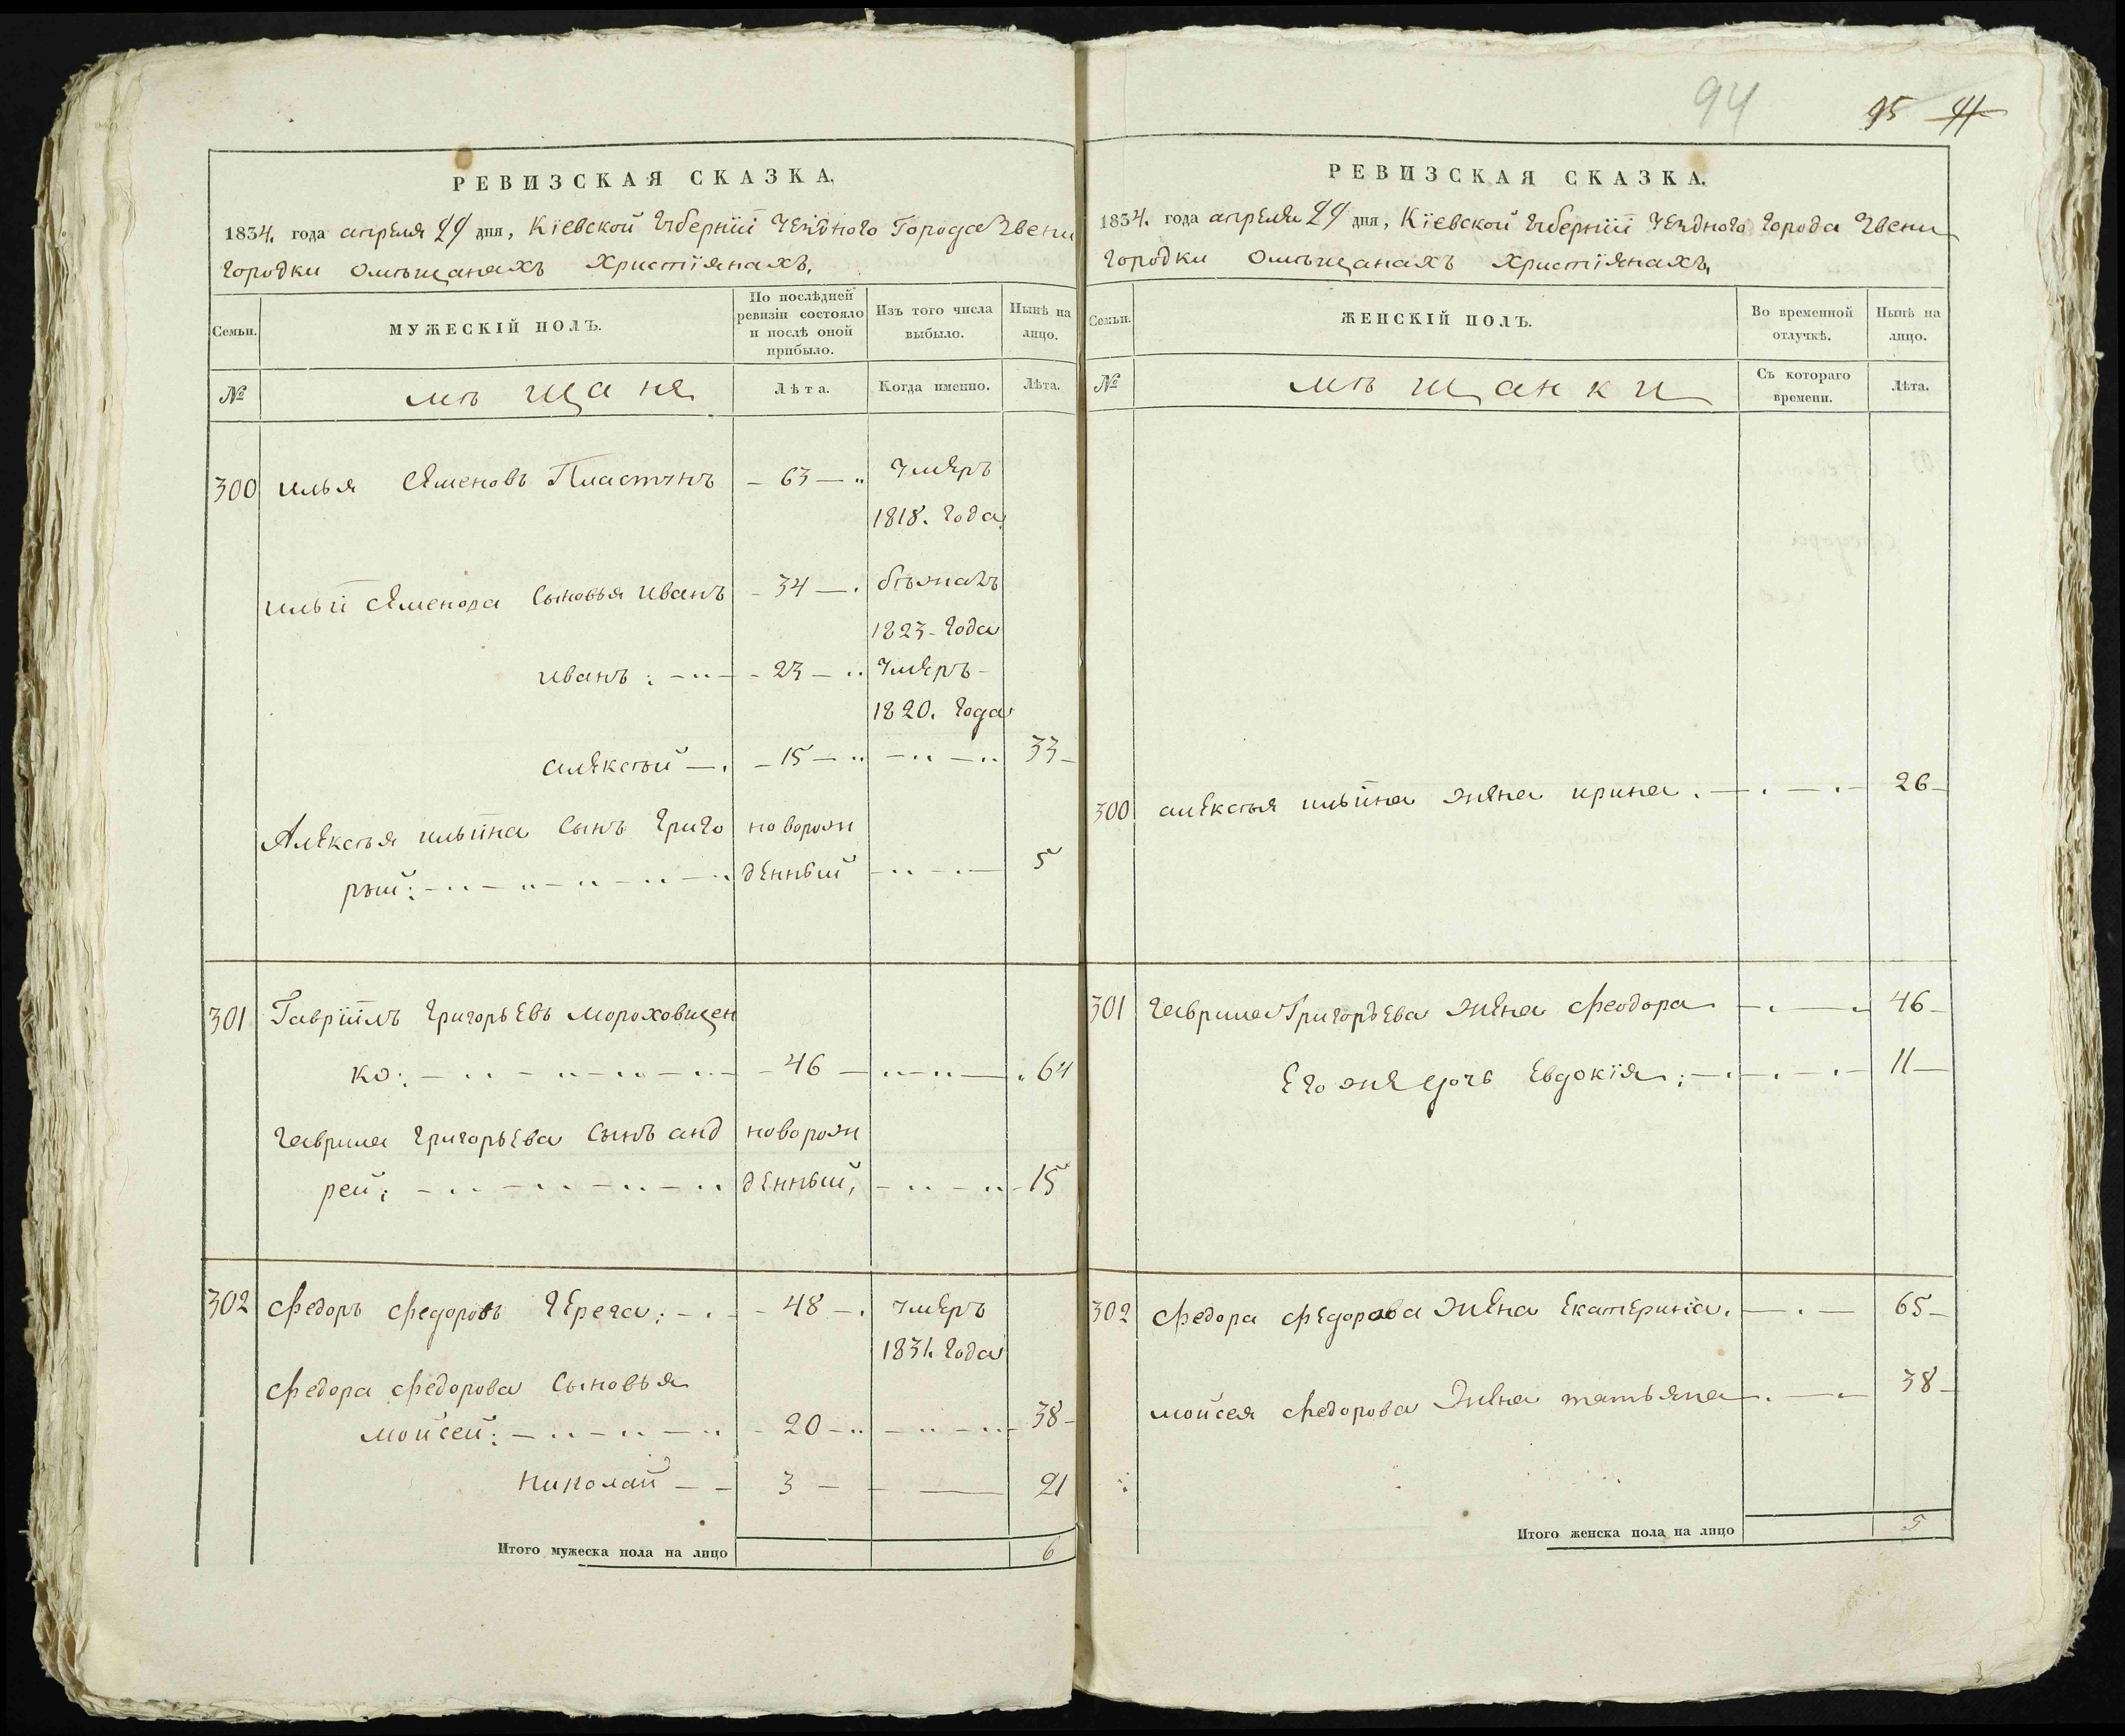 РЕВИЗСКАЯ СКАЗКА.
1834. года апреля 29 дня, Кіевской Губерніи Уезднаго Города Звени
городки Омѣщанахъ Христіянахъ.
Семьи.
МУЖЕСКІЙ ПОЛЪ.
По послѣдней ревизіи состояло и послѣ оной прибыло.
Изъ того числа выбыло.
Нынѣ на лицо.
№
мѣщаня
Лѣта.
Когда именно.
Лѣта.
300 илья Семеновъ Пластунъ – 63 – умеръ
1818. года
ильи Семенова Сыновья иванъ – 34 – бѣжалъ
1823 – года
иванъ : – 23 – умеръ –
1820. года
алексѣй – 15 – 33 –
Алексѣя ильина Сынъ Григо новорож
рый : денный 5
301 Гавріилъ Григорьевъ Мороховщен
ко : – 46 – 64
Гаврила Григорьева Сынъ анд новорож
рей ; денный, – 15
302 Федоръ Федоровъ Черега ; – 48 – умеръ
1831. года
Федора Федорова Сыновья
мойсей : – 20 – 38 –
Николай – – 3 – 21
Итого мужеска пола на лицо 6
94
95 41
РЕВИЗСКАЯ СКАЗКА.
1834. года апреля 29 дня, Кіевской Губерніи Уезднаго города Звени
городки Омѣщанахъ Христіянахъ.
Семьи.
ЖЕНСКІЙ ПОЛЪ.
Во временной отлучкѣ.
Нынѣ на лицо.
№
мѣщанки
Съ котораго времени.
Лѣта.
300 алексѣя ильина жена ирина . – 26 –
301 Гаврила Григорьева жена Феодора – 46 –
Его же дочь Евдокія ; – 11 –
302 Федора Федорова жена Екатерина . – 65 –
мойсея Федорова жена татьяна . – 38 –
Итого женска пола на лицо 5